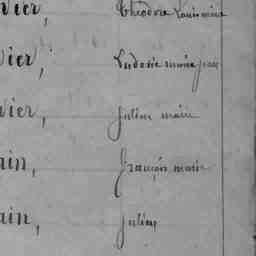 vier, Théodore Louis marie
vier, Ludovic marie Jean
vier, Julien marie
ain, François marie
ain, Julien